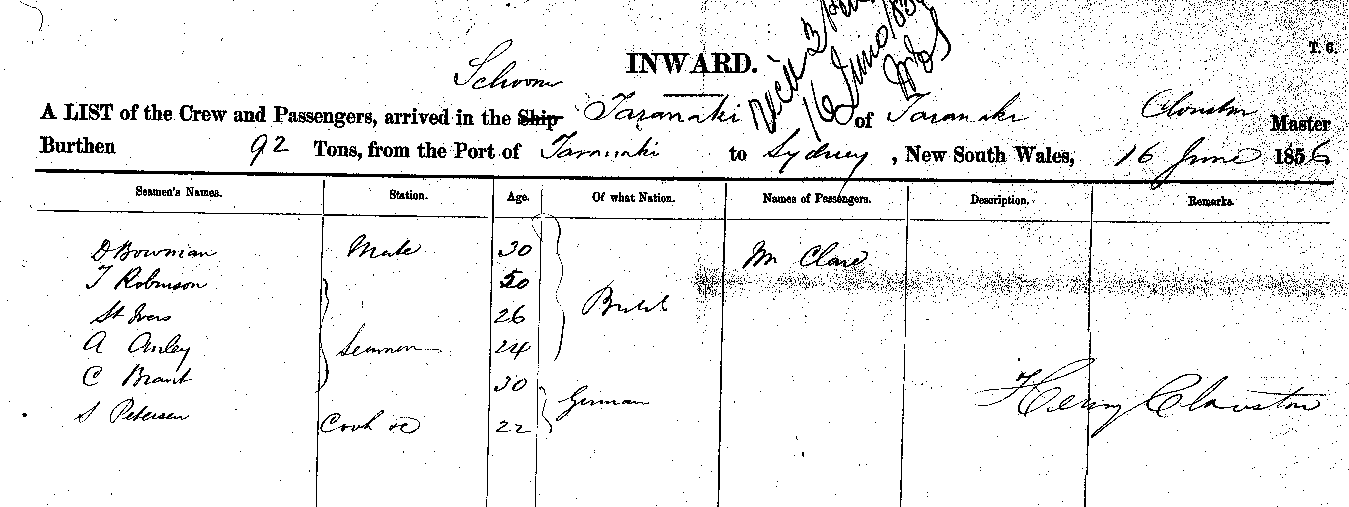 T. 6.
INWARD.
16 June 185
Schooner
A LIST of the Crew and Passengers, arrived in the Ship Taranaki of Taranaki Clouston Master
Burthen 92 Tons, from the Port of Taranaki to Sydney, New South Wales, 16 June 1856
Seamen's Names. Station. Age. Of what Nation. Names of Passengers. Description. Remarks.
D Bowman Mate 30 Mr Clare
T Robinson 50
St Ives 26 British
A Anley Seamen 24
C Brant 30
S Petersen Cook &c 22 German
Henry Clouston